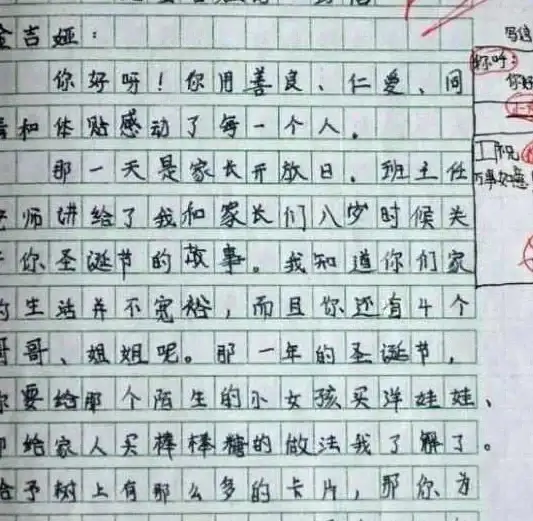 金吉娅：
你好呀！你用善良、仁爱、同
情和体贴感动了每一个人。
那一天是家长开放日。班主任
老师讲给了我和家长们八岁时候关
于你圣诞节的故事。我知道你们家
的生活并不宽裕，而且你还有4个
哥哥、姐姐呢。那一年的圣诞节，
你要给那个陌生的小女孩买洋娃娃、
却给家人买棒棒糖的做法我了解了。
给予树上有那么多的卡片，那你为
写信
称呼：
你好
工作
祝
万事如意！